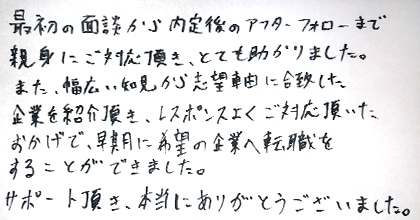 最初の面談から内定後のアフターフォローまで
親身にご対応頂き、とても助かりました。
また、幅広い知見から志望軸に合致した
企業を紹介頂き、レスポンスよくご対応頂いた
おかげで、早期に希望の企業へ転職を
することができました。
サポート頂き、本当にありがとうございました。